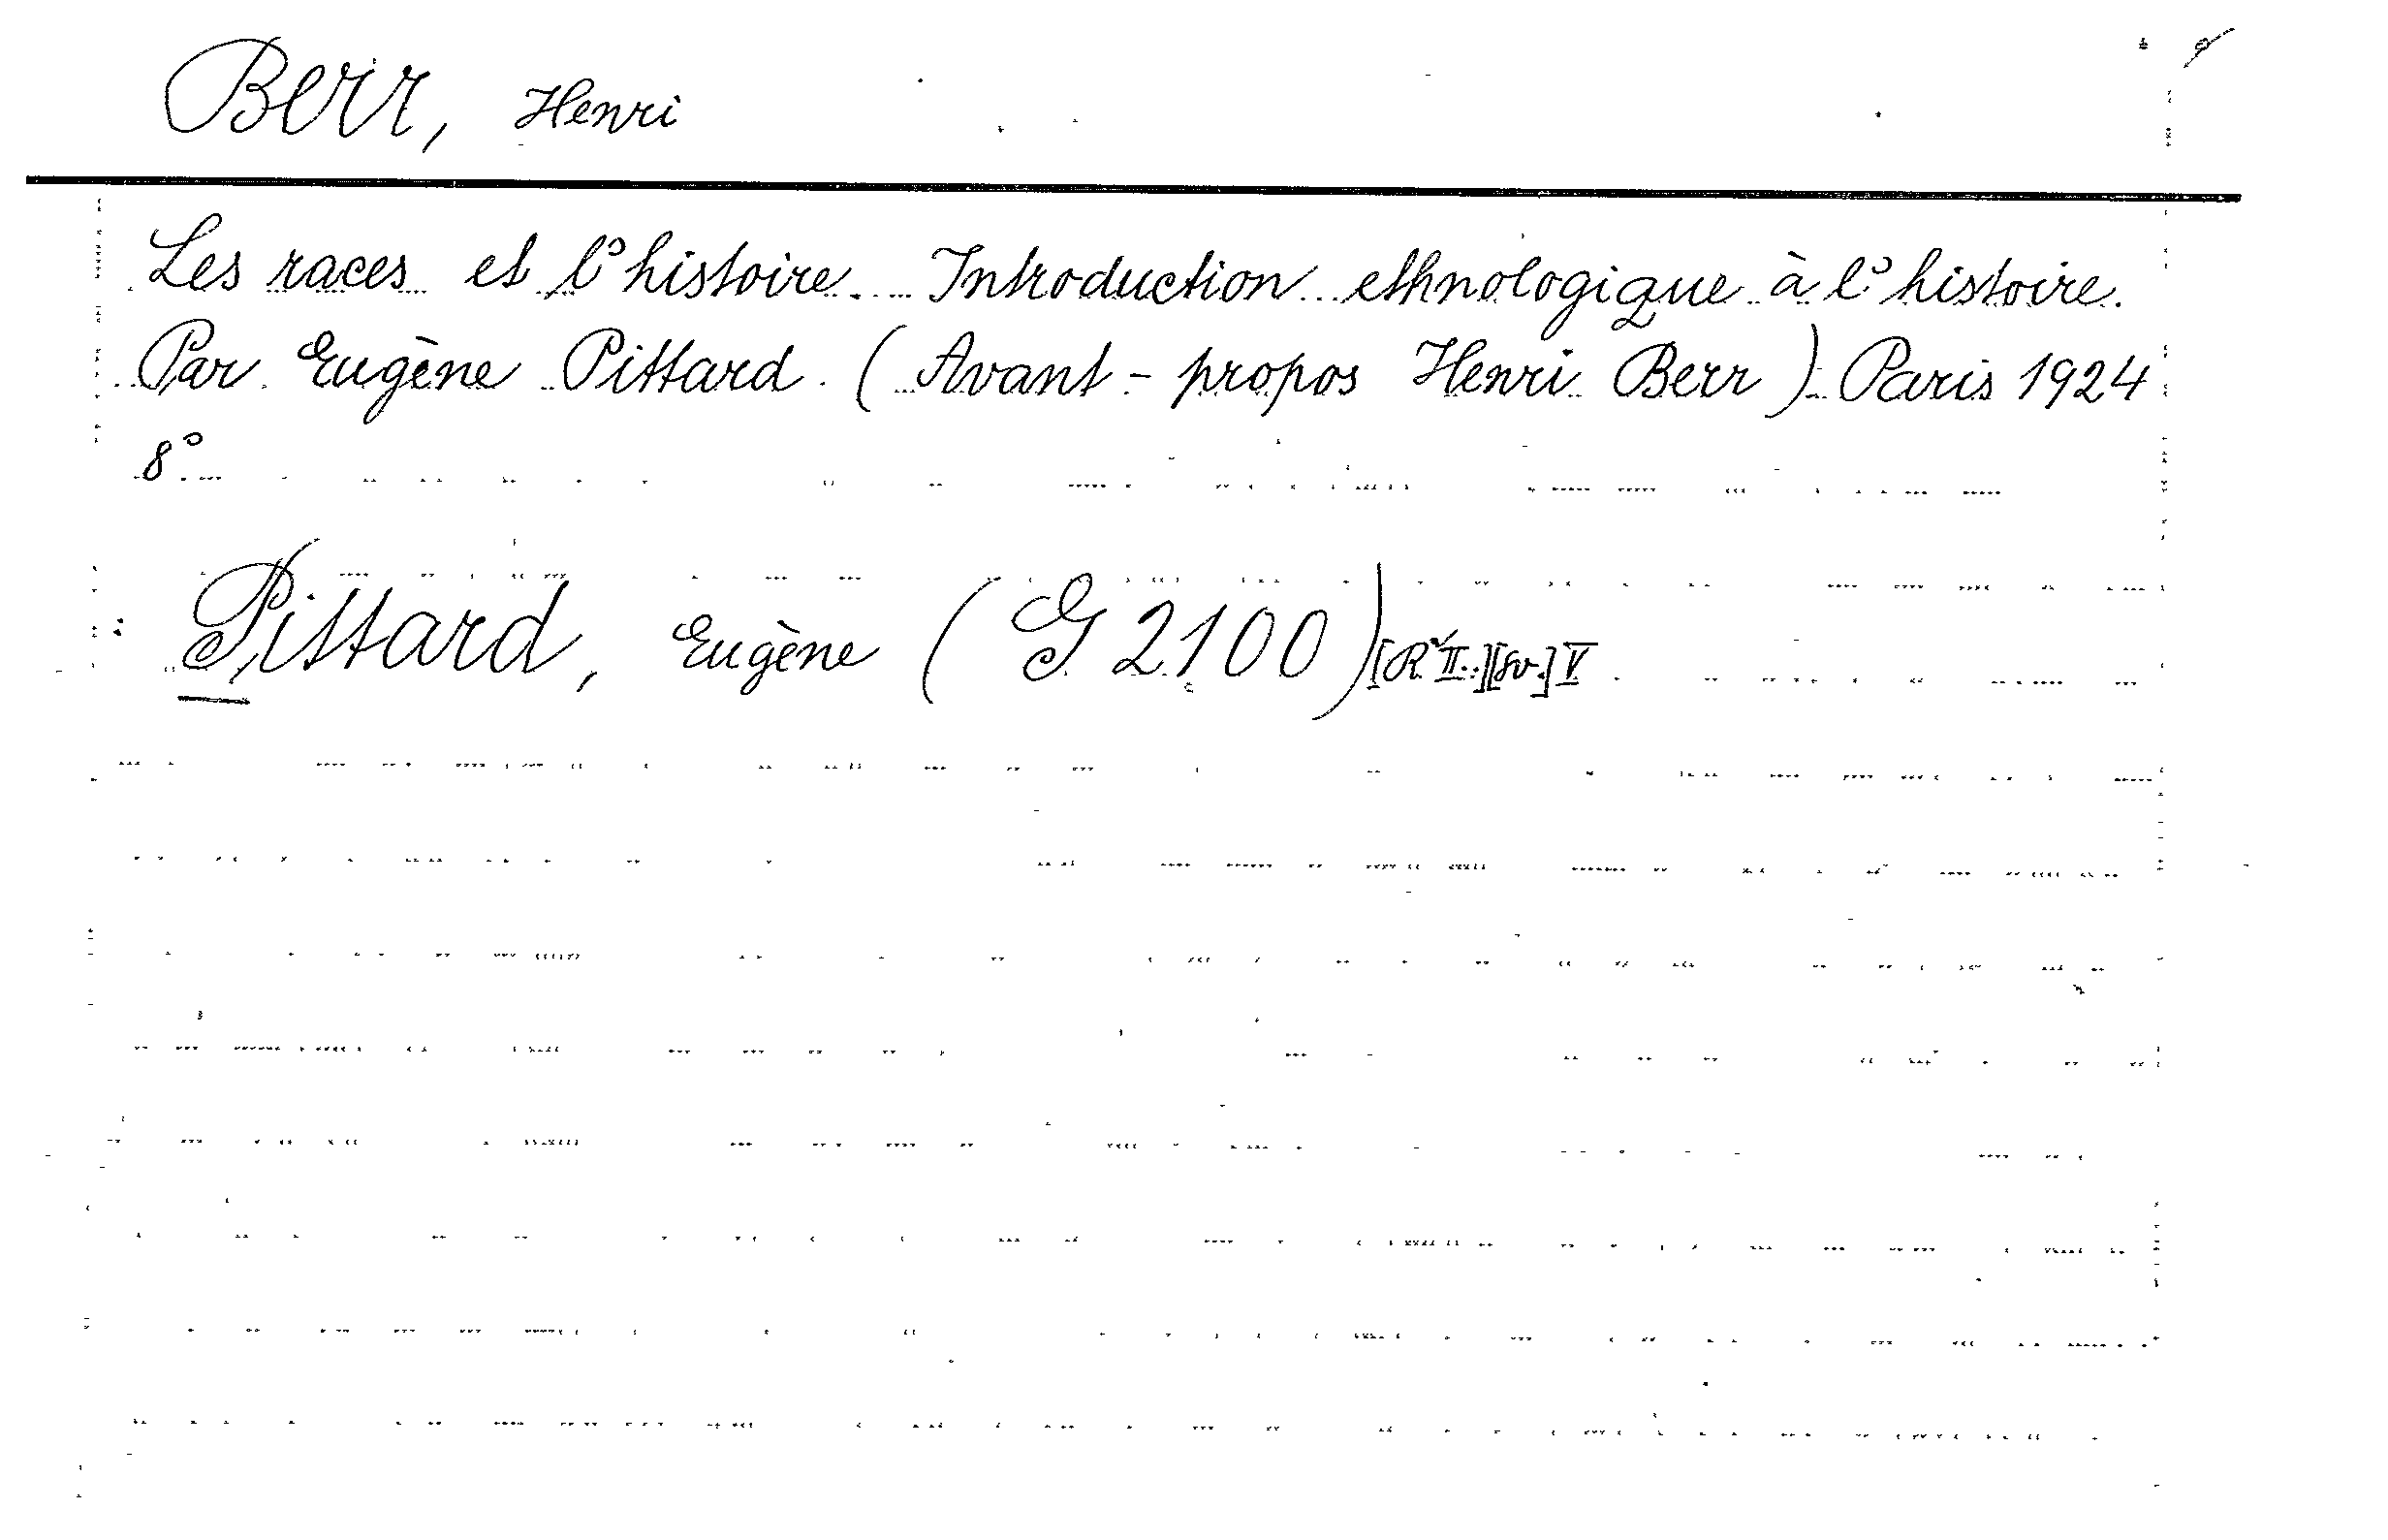 Berr, Henri
Les races et l'histoire. Introduction ethnologique à l'histoire.
Par Eugène Pittard. (Avant-propos Henri Berr) Paris 1924
8°
Pittard, Eugène (G 2100) [R II..] V